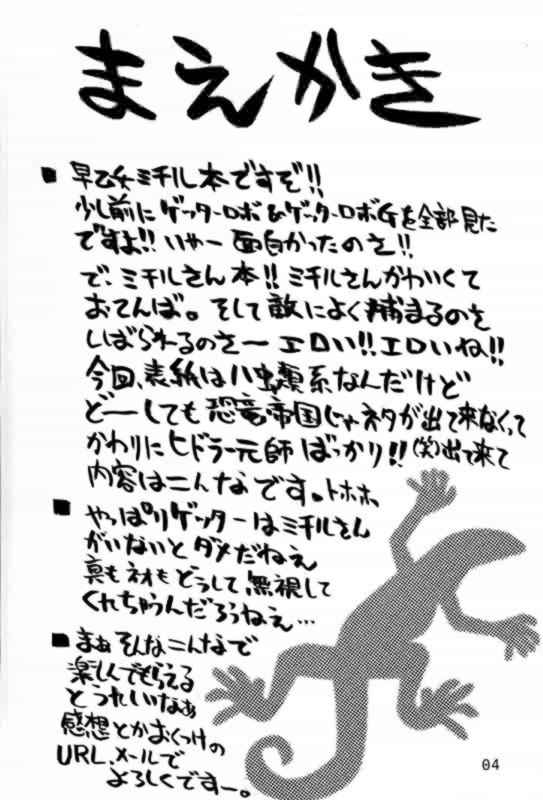 まえがき
■ 早乙女ミチル本ですぞ!!
少し前にゲッターロボ&ゲッターロボGを全部見た
ですよ!! いやー面白かったのさ!!
で、ミチルさん本!! ミチルさんかわいくて
おてんば。そして敵によく捕まるのさ
しばられるのさー エロい!! エロいね!!
今回、表紙はハ虫類系なんだけど
どーしても恐竜帝国じゃネタが出て来なくって
かわりにヒドラー元師ばっかり!!(笑)出て来て
内容はこんなです。トホホ
■ やっぱりゲッターはミチルさん
がいないとダメだねえ
真もネオもどうして無視して
くれちゃうんだろうねえ…
■ まぁそんなこんなで
楽しんでもらえる
とうれしいなぁ
感想とかおくつけの
URL、メールで
よろしくですー。
04